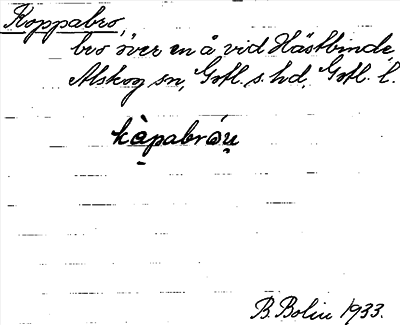 Koppabro,
bro över en å vid Hästbinde,
Alskog sn, Gotl. s. hd, Gotl. l.
kàpabróu
B. Bolin 1933.